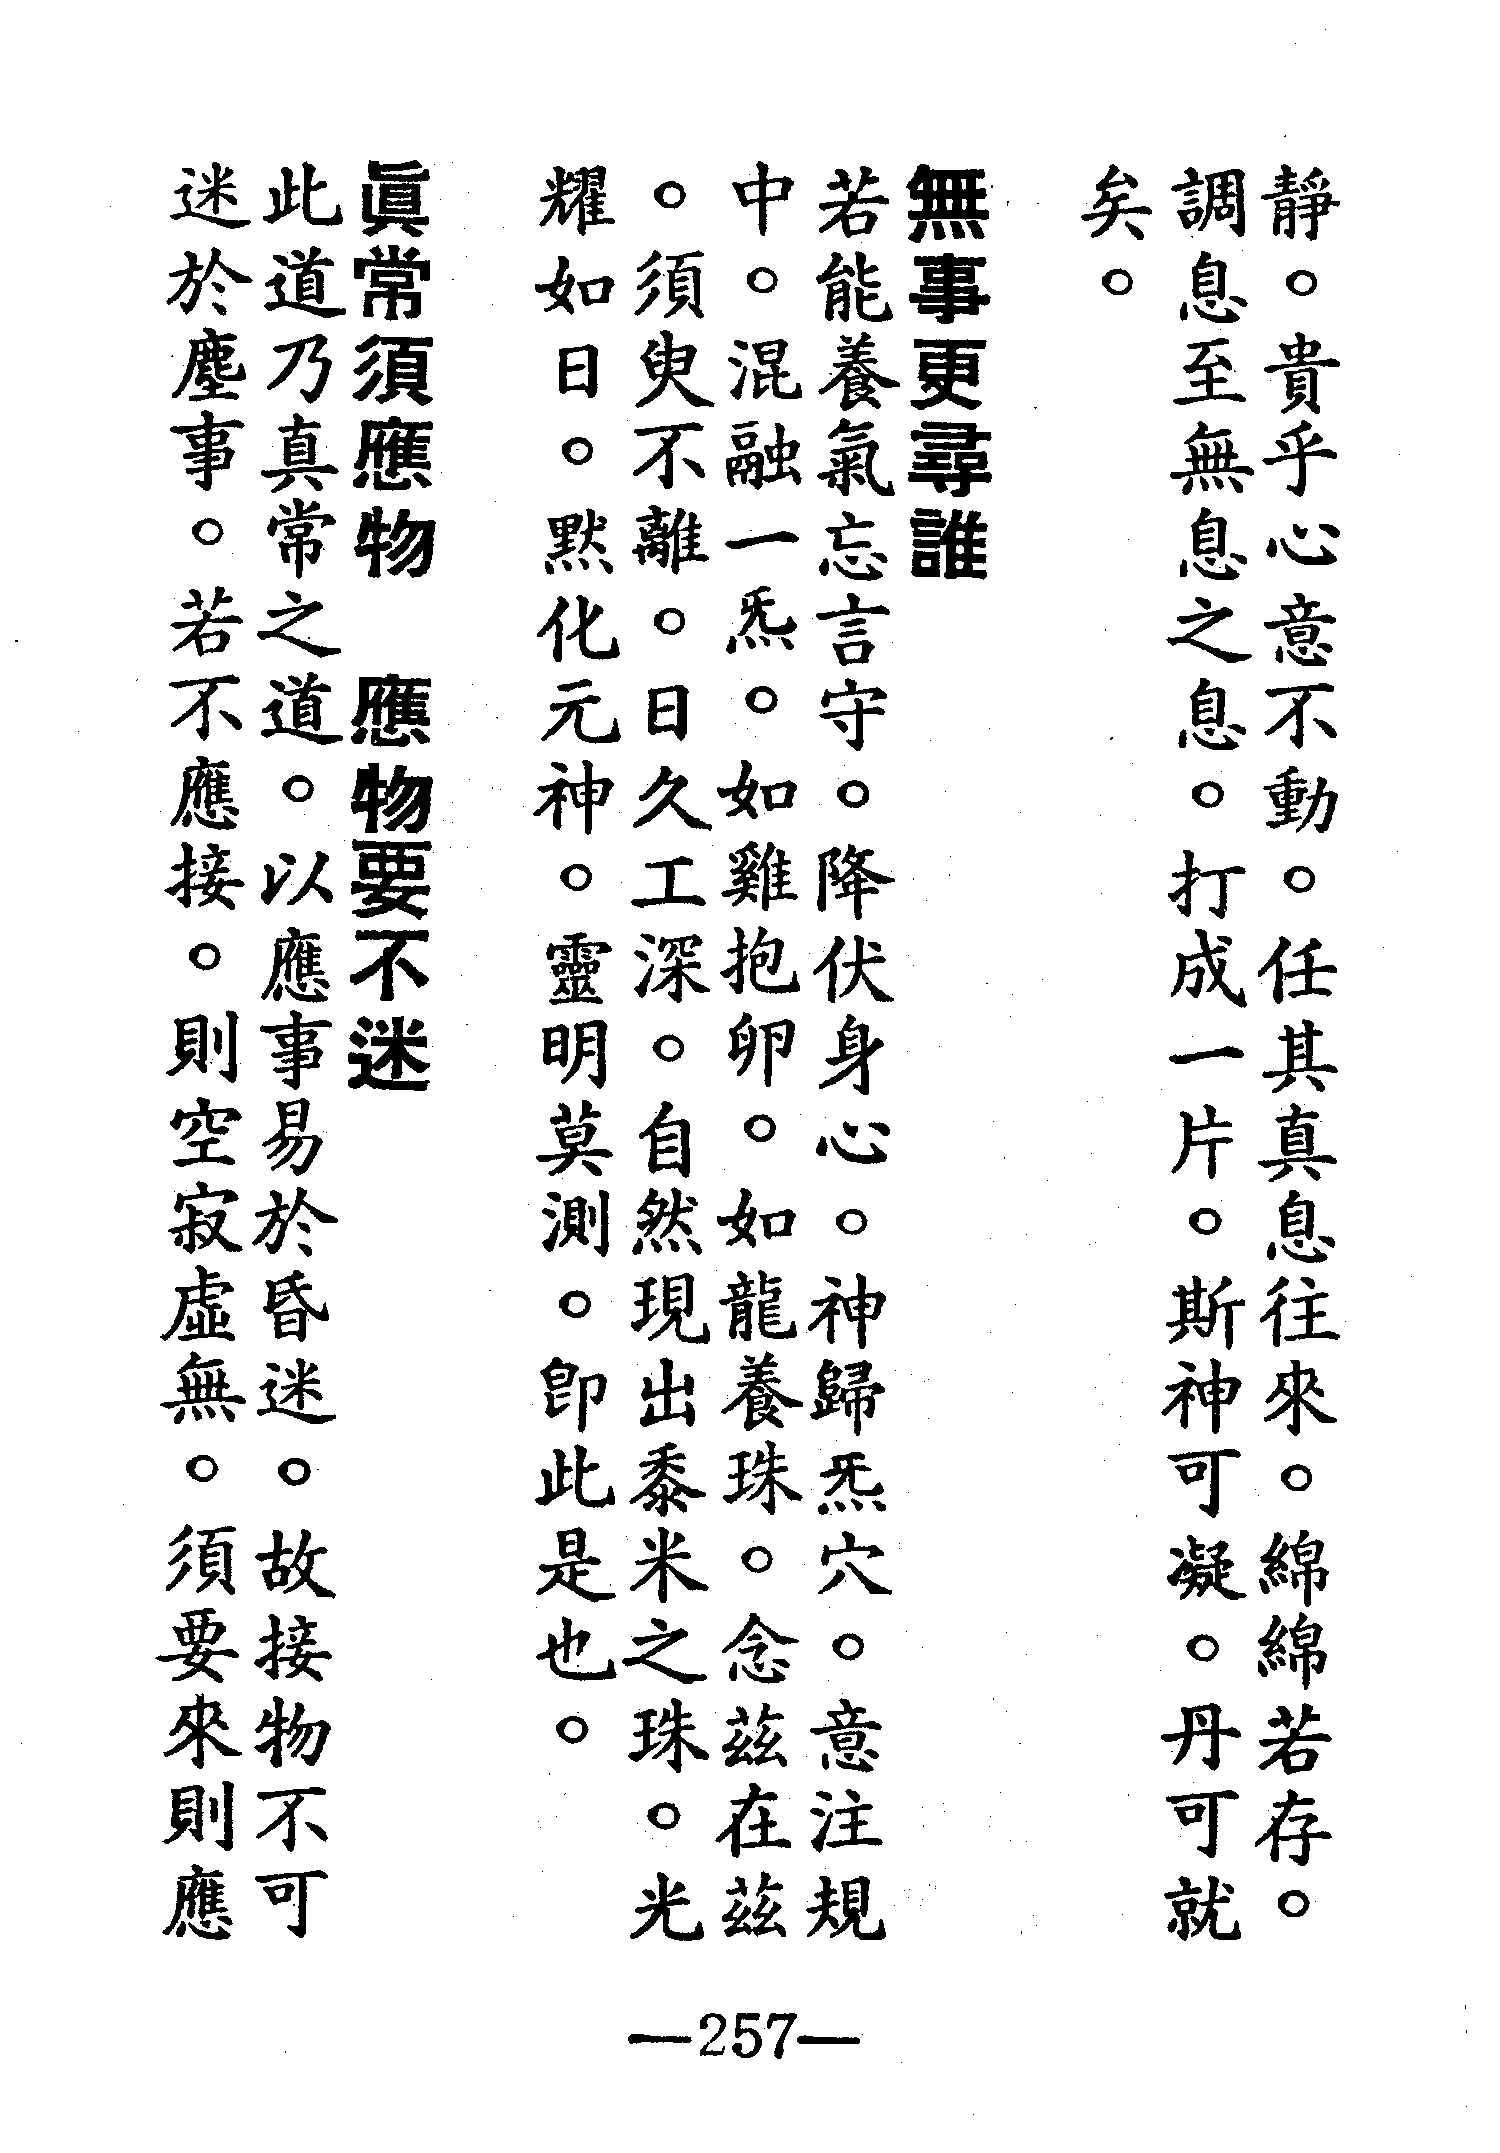 靜。貴乎心意不動。任其真息往來。綿綿若存。
調息至無息之息。打成一片。斯神可凝。丹可就
矣。
無事更尋誰
若能養氣忘言守。降伏身心。神歸炁穴。意注規
中。混融一炁。如雞抱卵。如龍養珠。念茲在茲
。須臾不離。日久工深。自然現出黍米之珠。光
耀如日。默化元神。靈明莫測。卽此是也。
眞常須應物　應物要不迷
此道乃真常之道。以應事易於昏迷。故接物不可
迷於塵事。若不應接。則空寂虛無。須要來則應
—257—